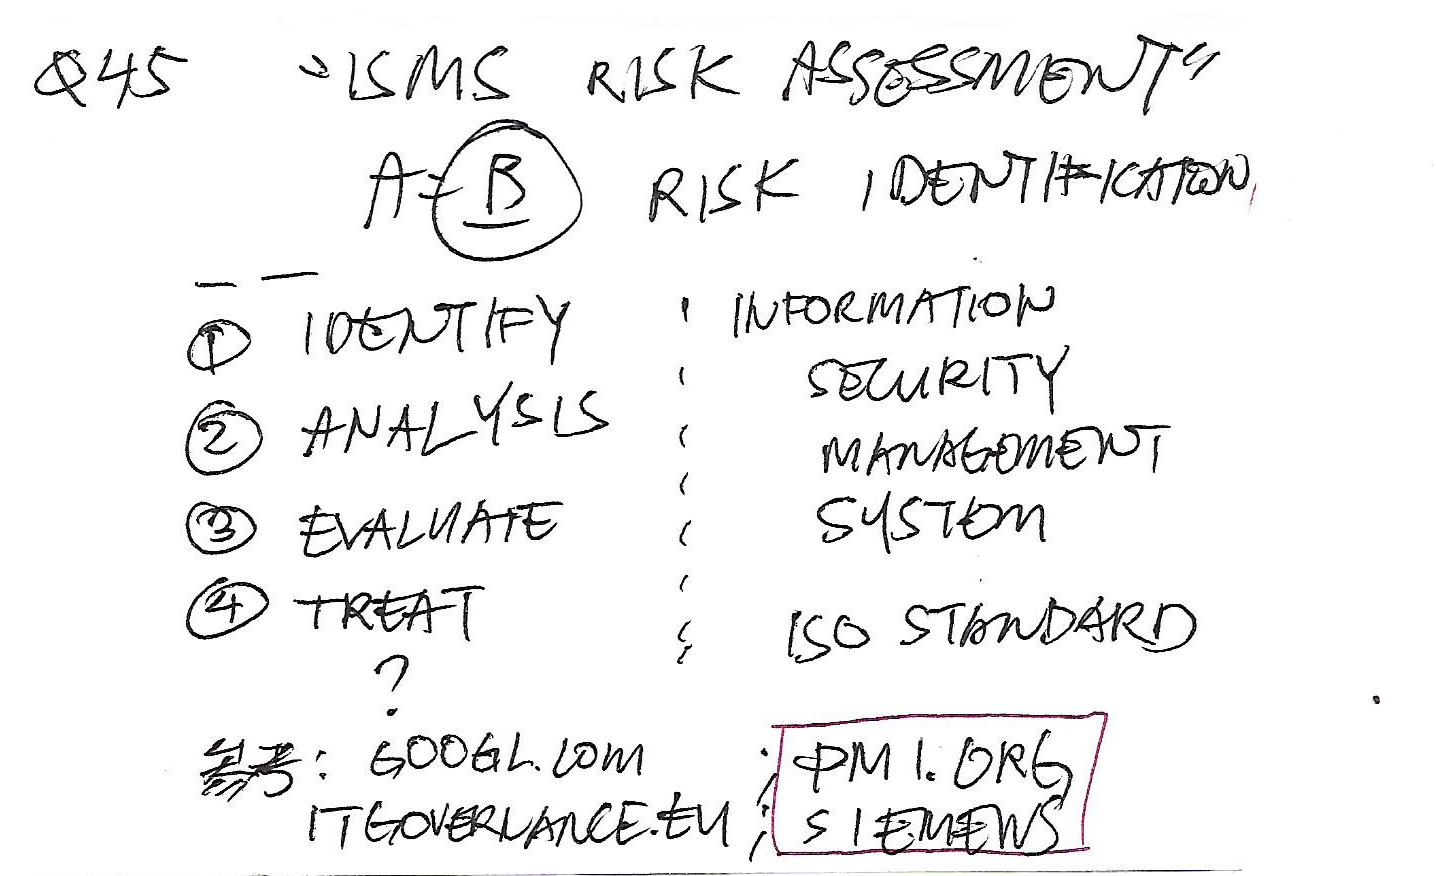 Q45 "ISMS RISK ASSESSMENT"
A=B RISK IDENTIFICATION
① IDENTIFY
② ANALYSIS
③ EVALUATE
④ TREAT
?
INFORMATION
SECURITY
MANAGEMENT
SYSTEM
ISO STANDARD
参考: GOOGL.COM ; PMI.ORG
ITGOVERNANCE.EU ; SIEMENS